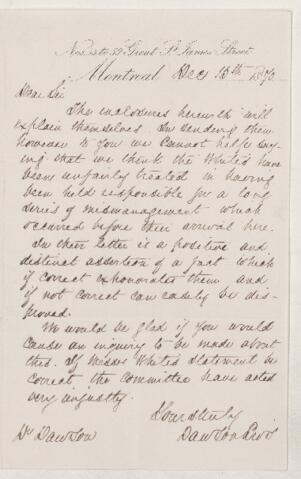 Nos 55 to 59 Great St James Street
Montreal Dec 13th 1870
Dear Sir
The inclosures herewith will
explain themselves. In sending them
however to you we cannot help say-
ing that we think the Whites have
been unfairly treated in having
been held responsible for a long
series of mismanagement which
occurred before their arrival here.
In their letter is a positive and
distinct assertion of a fact which
if correct exhonorates them and
if not correct can easily be dis-
proved.
We would be glad if you would
cause an inquiry to be made about
this. If Messrs Whites statement be
correct, the Committee have acted
very unjustly.
Yours truly
Dr Dawson Dawson Bros